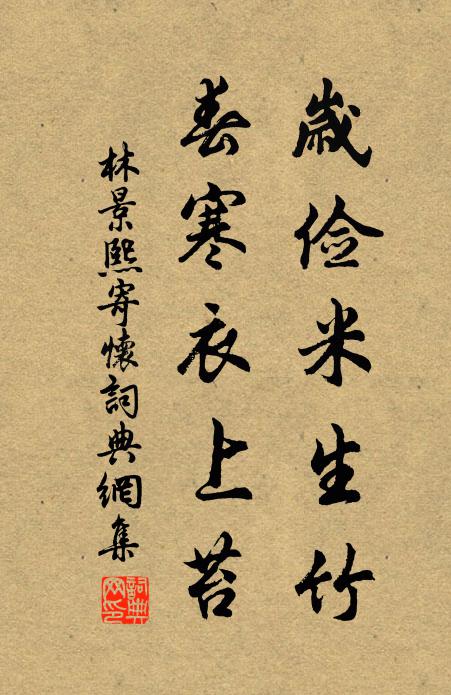 歲儉米生竹
春寒衣上苔
林景熙寄懷詞典網集
詞典網印